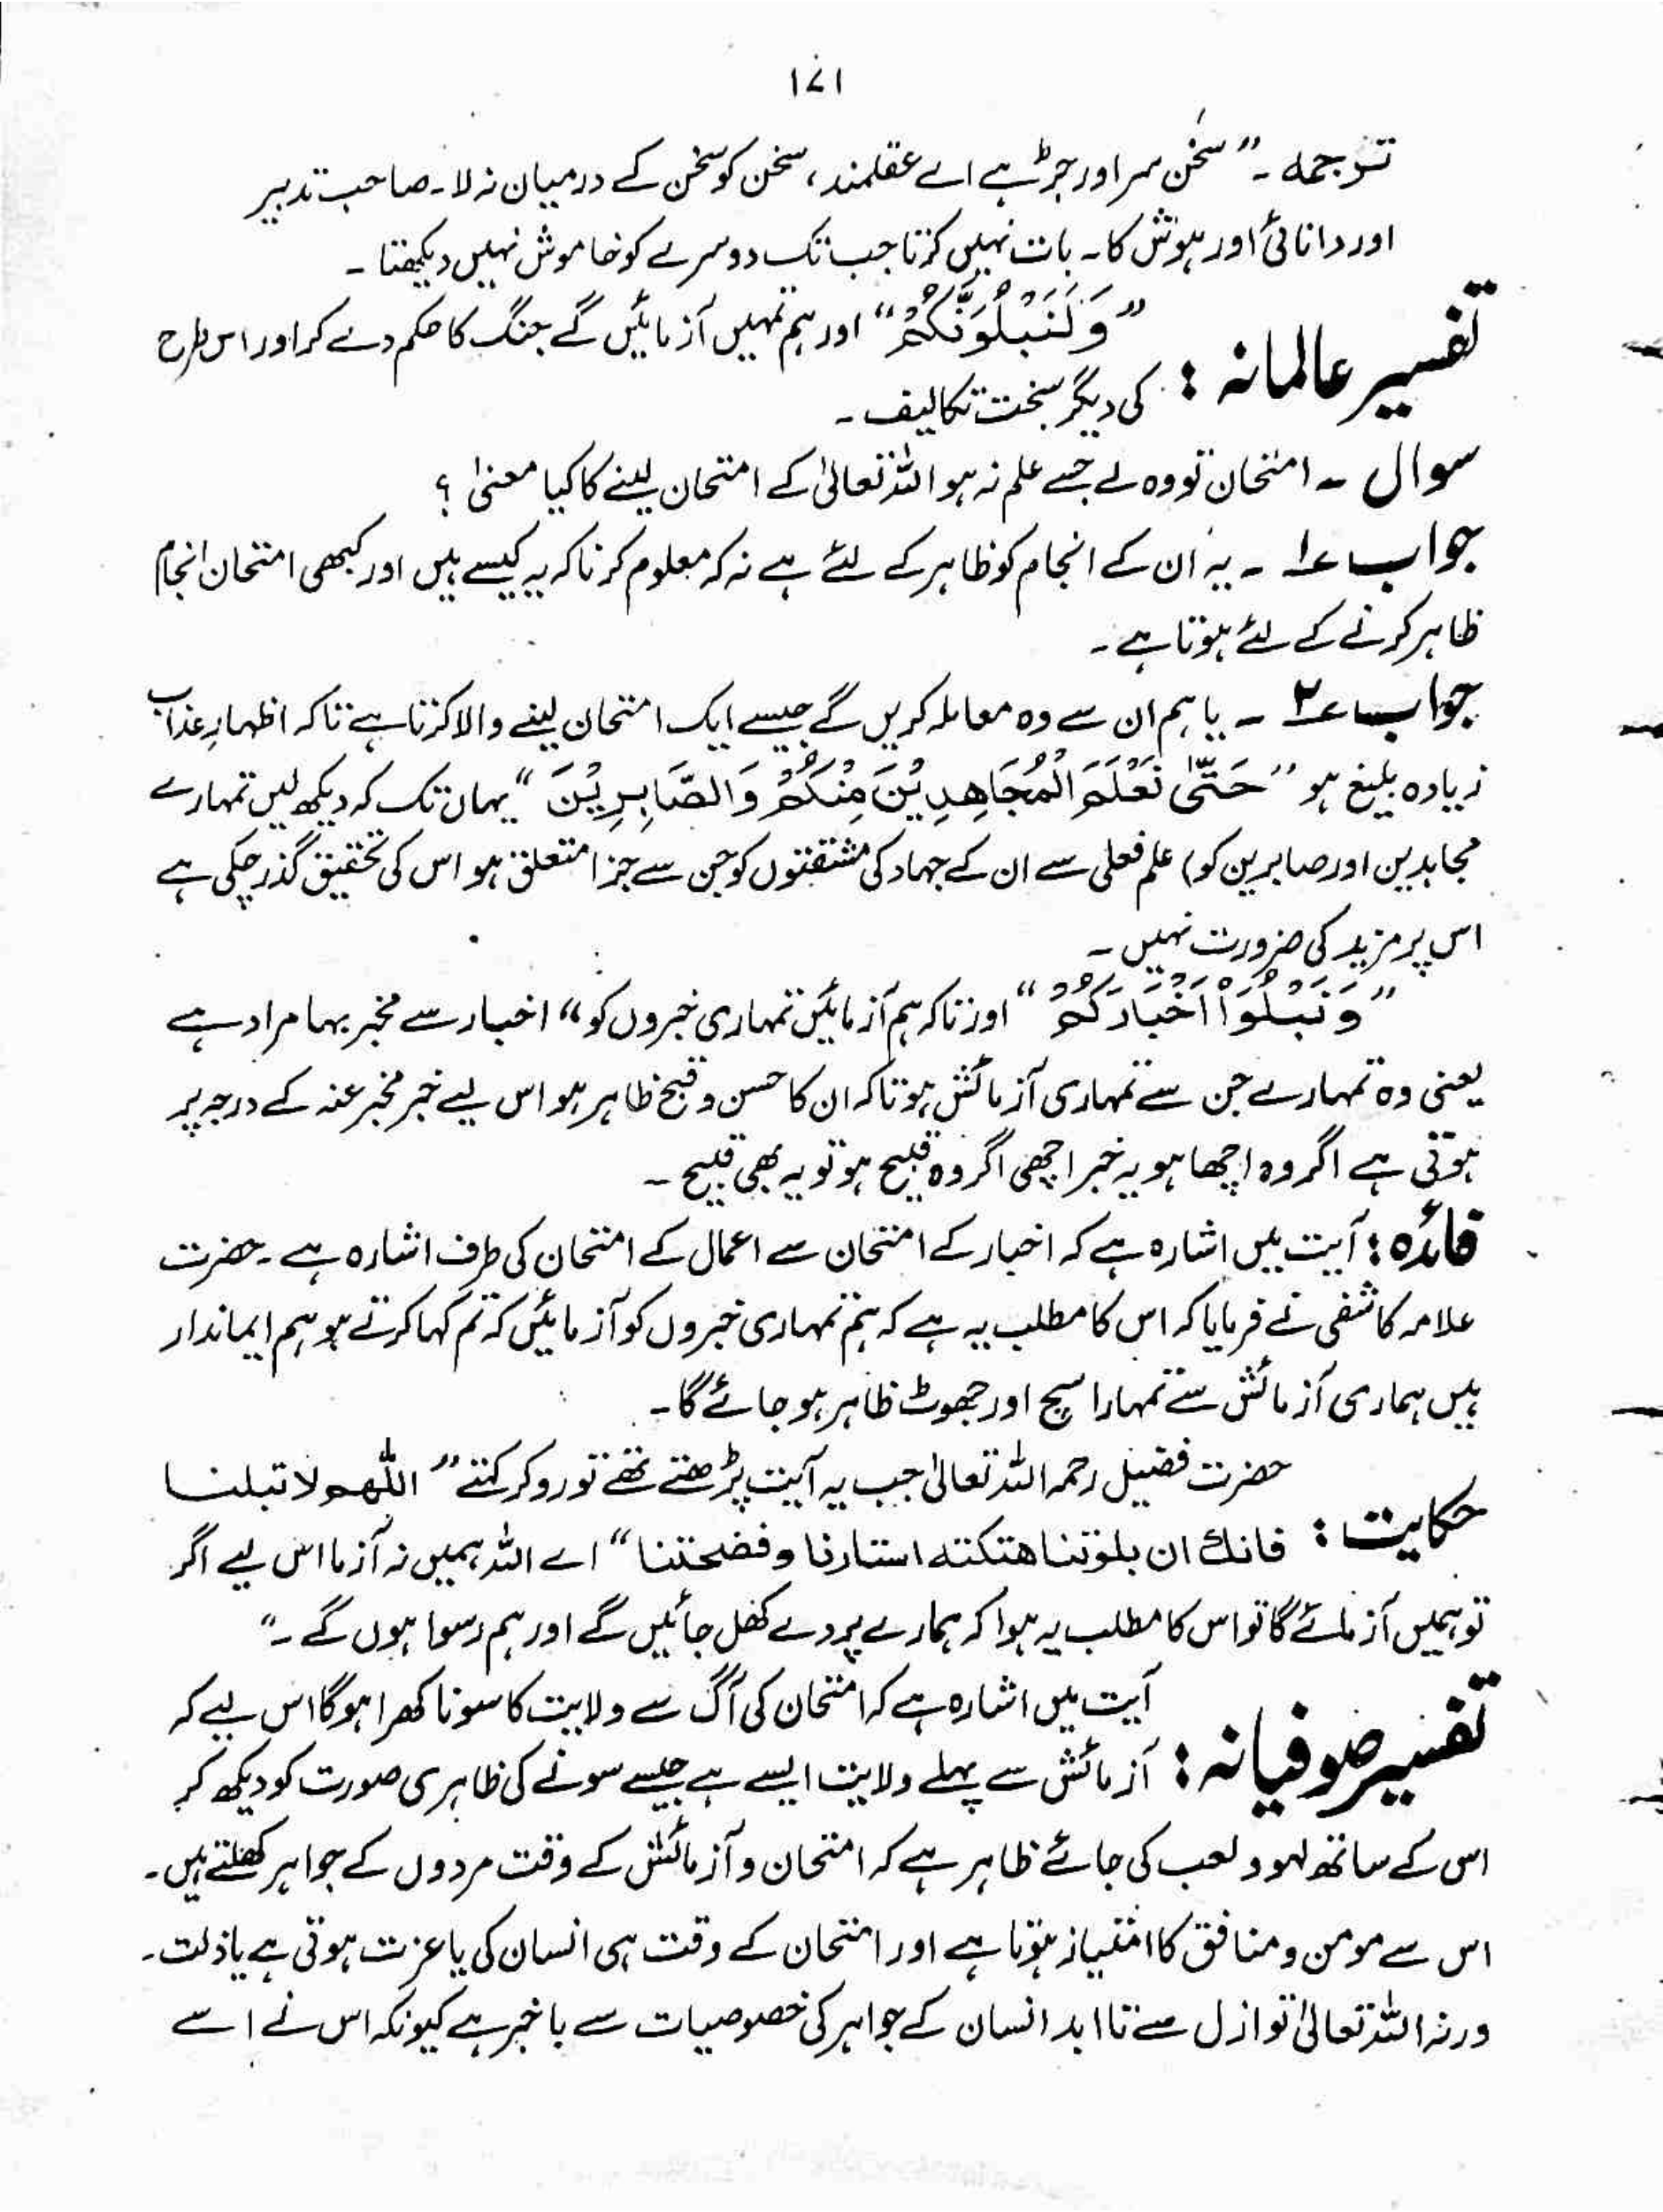 ۱۷۱
ترجمہ ۔ ” سخن سر اور جڑ ہے اے عقلمند ، سخن کو سخن کے درمیان نہ لا ۔ صاحب تدبیر
اور دانائی اور ہوش کا ۔ بات نہیں کرتا جب تک دوسرے کو خاموش نہیں دیکھتا ۔
تفسیر عالمانہ :
” وَلَنَبْلُوَنَّكُمْ “ اور ہم تمہیں آزمائیں گے جنگ کا حکم دے کر اور اس طرح
کی دیگر سخت تکالیف ۔
سوال ۔ امتحان تو وہ لے جسے علم نہ ہو اللہ تعالیٰ کے امتحان لینے کا کیا معنیٰ ؟
جواب ع۱ ۔ یہ ان کے انجام کو ظاہر کے لئے ہے نہ کہ معلوم کرنا کہ یہ کیسے ہیں اور کبھی امتحان انجام
ظاہر کرنے کے لئے ہوتا ہے ۔
جواب ع۲ ۔ یا ہم ان سے وہ معاملہ کریں گے جیسے ایک امتحان لینے والا کرتا ہے تاکہ اظہارِ عذاب
زیادہ بلیغ ہو ” حَتّٰى نَعْلَمَ الْمُجَاهِدِيْنَ مِنْكُمْ وَالصَّابِرِيْنَ “ یہاں تک کہ دیکھ لیں تمہارے
مجاہدین اور صابرین کو) علم فعلی سے ان کے جہاد کی مشقتوں کو جن سے جزا متعلق ہو اس کی تحقیق گذر چکی ہے
اس پر مزید کی ضرورت نہیں ۔
” وَنَبْلُوَاْ اَخْبَارَكُمْ “ اور تاکہ ہم آزمائیں تمہاری خبروں کو “ اخبار سے مخبر بہا مراد ہے
یعنی وہ تمہارے جن سے تمہاری آزمائش ہو تاکہ ان کا حسن و قبح ظاہر ہو اس لیے خبر مخبر عنہ کے درجہ پر
ہوتی ہے اگر وہ اچھا ہو یہ خبر اچھی اگر وہ قبیح ہو تو یہ بھی قبیح ۔
فائدہ : آیت میں اشارہ ہے کہ اخبار کے امتحان سے اعمال کے امتحان کی طرف اشارہ ہے ۔ حضرت
علامہ کاشفی نے فرمایا کہ اس کا مطلب یہ ہے کہ ہم تمہاری خبروں کو آزمائیں کہ تم کہا کرتے ہو ہم ایماندار
ہیں ہماری آزمائش سے تمہارا سچ اور جھوٹ ظاہر ہو جائے گا ۔
حکایت :
حضرت فضیل رحمہ اللہ تعالیٰ جب یہ آیت پڑھتے تھے تو رو کر کہتے ” اللّٰھم لا تبلنا
فانك ان بلوتنا هتكته استارنا وفضحتنا “ اے اللہ ہمیں نہ آزما اس لیے اگر
تو ہمیں آزمائے گا تو اس کا مطلب یہ ہوا کہ ہمارے پردے کھل جائیں گے اور ہم رسوا ہوں گے ۔“
تفسیر صوفیانہ :
آیت میں اشارہ ہے کہ امتحان کی آگ سے ولایت کا سونا کھرا ہوگا اس لیے کہ
آزمائش سے پہلے ولایت ایسے ہے جیسے سونے کی ظاہری صورت کو دیکھ کر
اس کے ساتھ لہو و لعب کی جائے ظاہر ہے کہ امتحان و آزمائش کے وقت مردوں کے جواہر کھلتے ہیں ۔
اس سے مومن و منافق کا امتیاز ہوتا ہے اور امتحان کے وقت ہی انسان کی یا عزت ہوتی ہے یا ذلت ۔
ورنہ اللہ تعالیٰ تو ازل سے تا ابد انسان کے جواہر کی خصوصیات سے باخبر ہے کیونکہ اس نے اسے